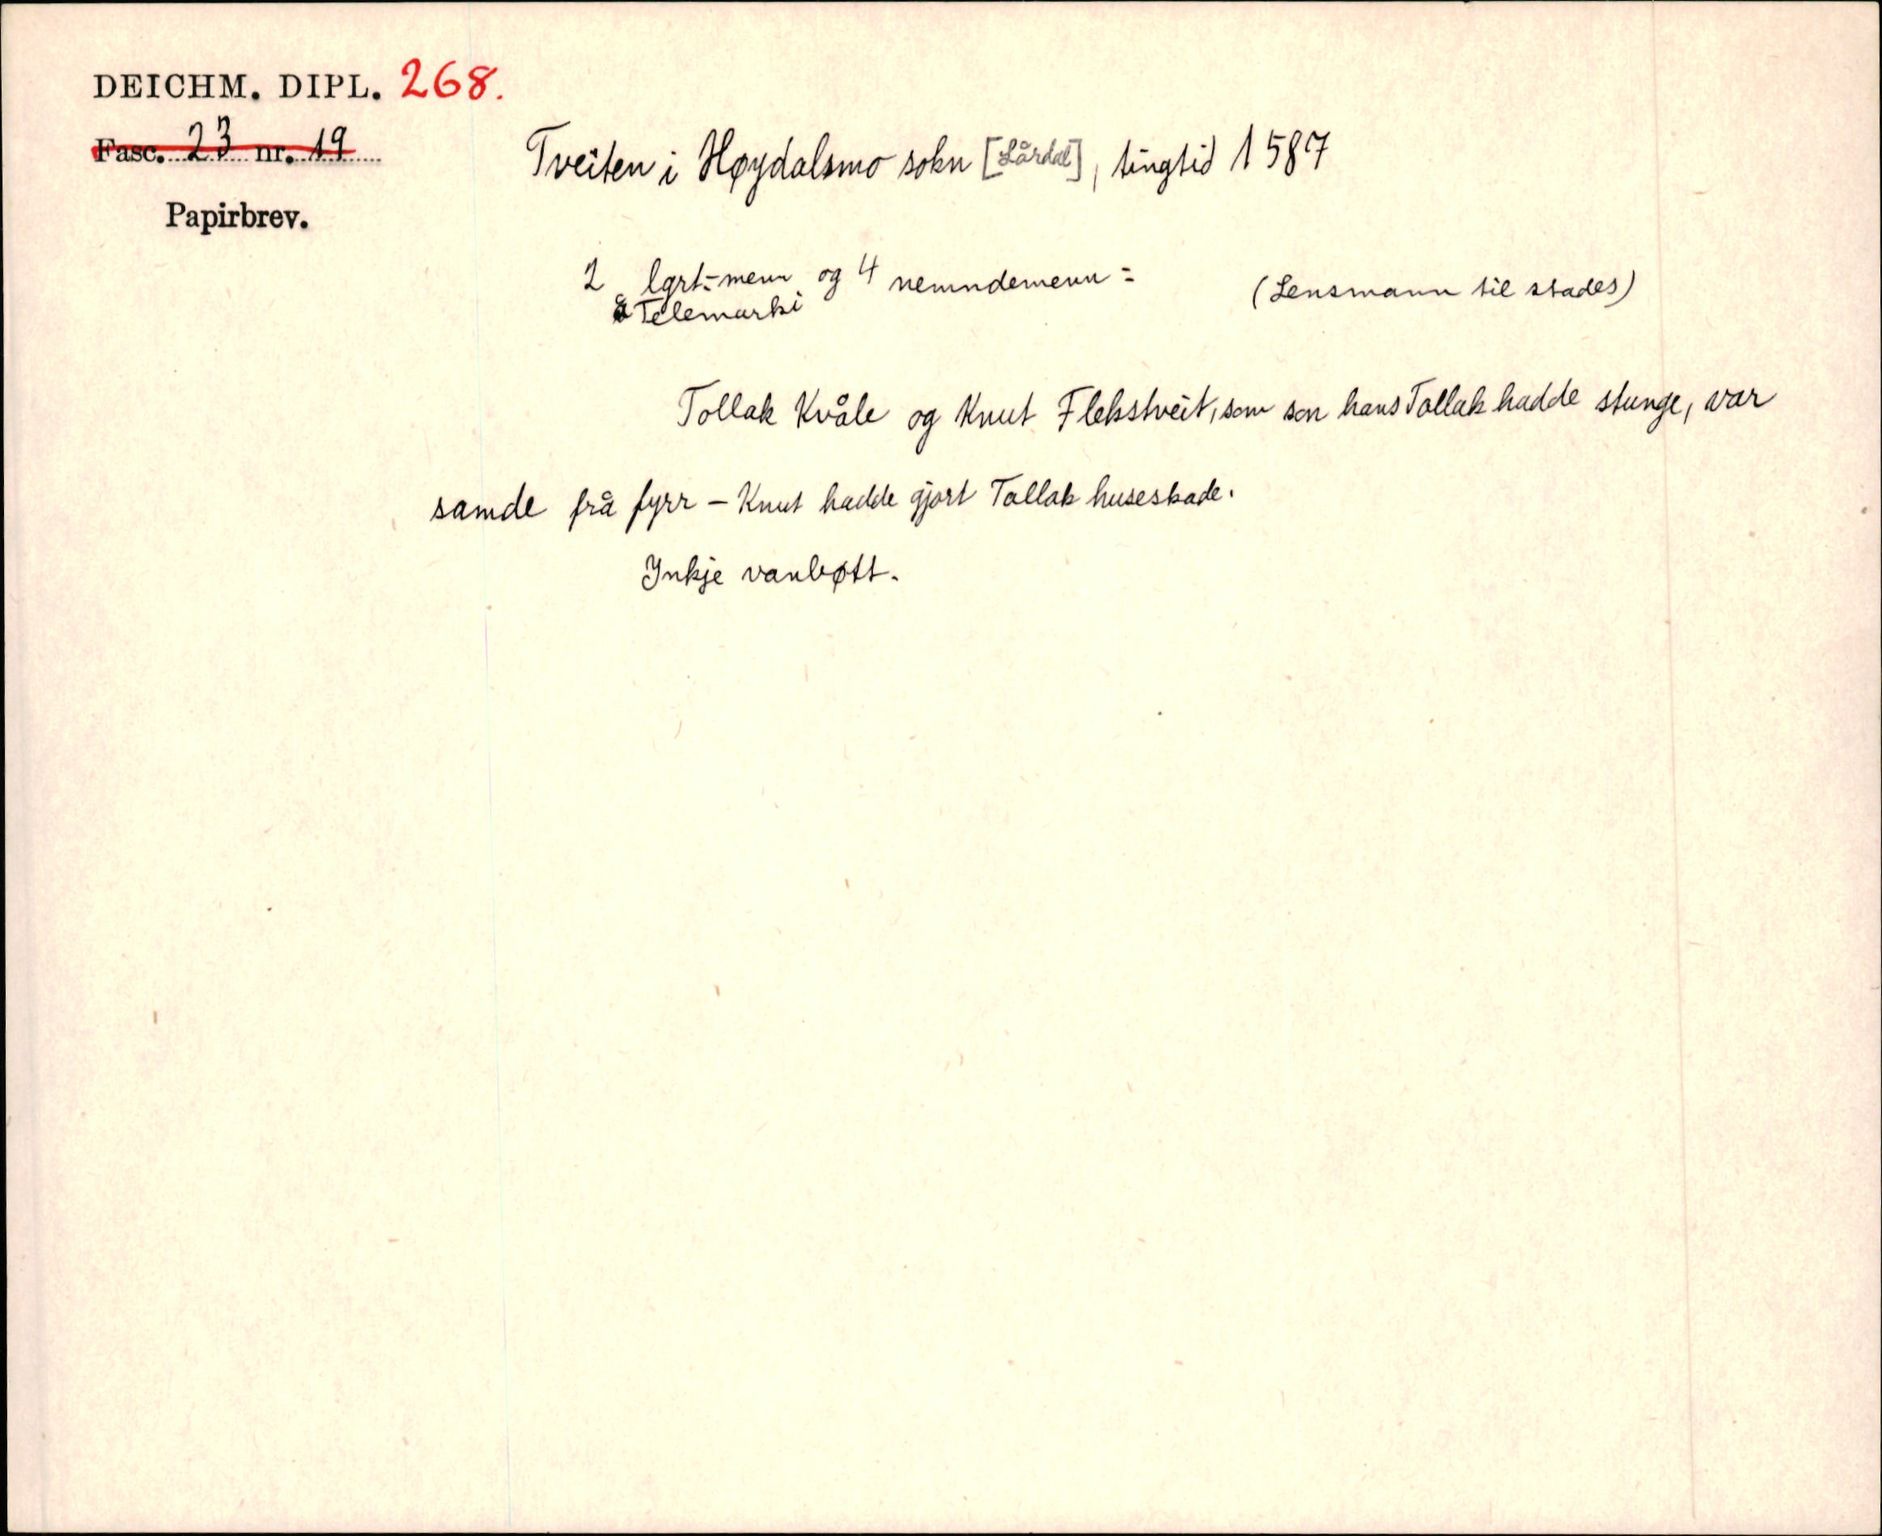 DEICHM. DIPL. 268.
Fasc. 23 nr. 19
Papirbrev.
Tveiten i Høydalsmo sokn [Lårdal], tingtid 1587
2 lgrt.-menn og 4 nemndemenn :
å Telemarki
(Lensmann til stades)
Tollak Kvåle og Knut Flekstveit, som son hans Tollak hadde stunge, var
samde frå fyrr – Knut hadde gjort Tollak huseskade.
Inkje vanbøtt.